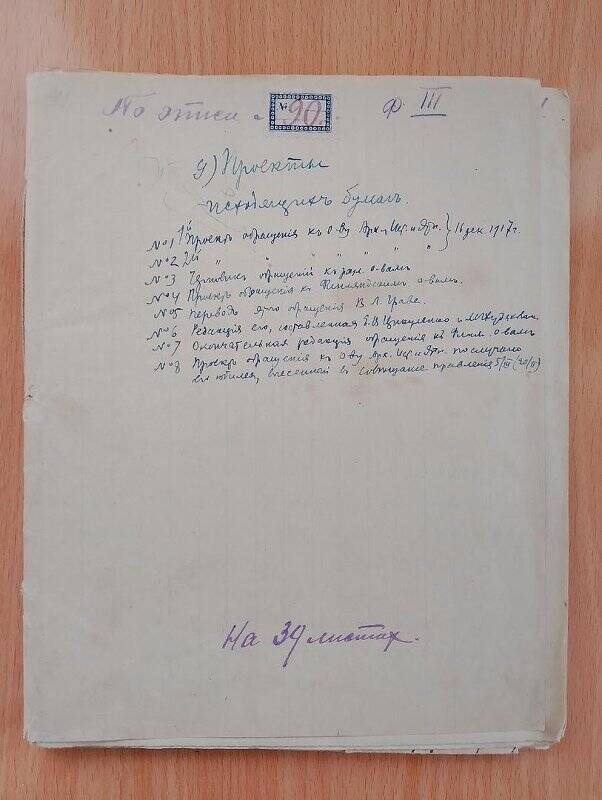 По описи № 90. Ф. III
9) Проекты
исходящихъ бумагъ.
№1 1й Проектъ обращенія къ О-ву Арх., Ист. и Этн. } 16 дек. 1917 г.
№2 2й " " " " " "
№3 Черновикъ обращеній къ разн. о-вамъ
№4 Проектъ обращенія къ Финляндскимъ о-вамъ.
№5 Переводъ этого обращенія В. Л. Граве.
№6 Редакція его, составленная и
№7 Окончательная редакція обращенія къ Финл. о-вамъ
№8 Проектъ обращенія къ О-ву Арх. Ист. и Этн. по случаю
его юбилея, внесенной въ совѣщаніе правленія 5/III (20/II)
На 39 листах.